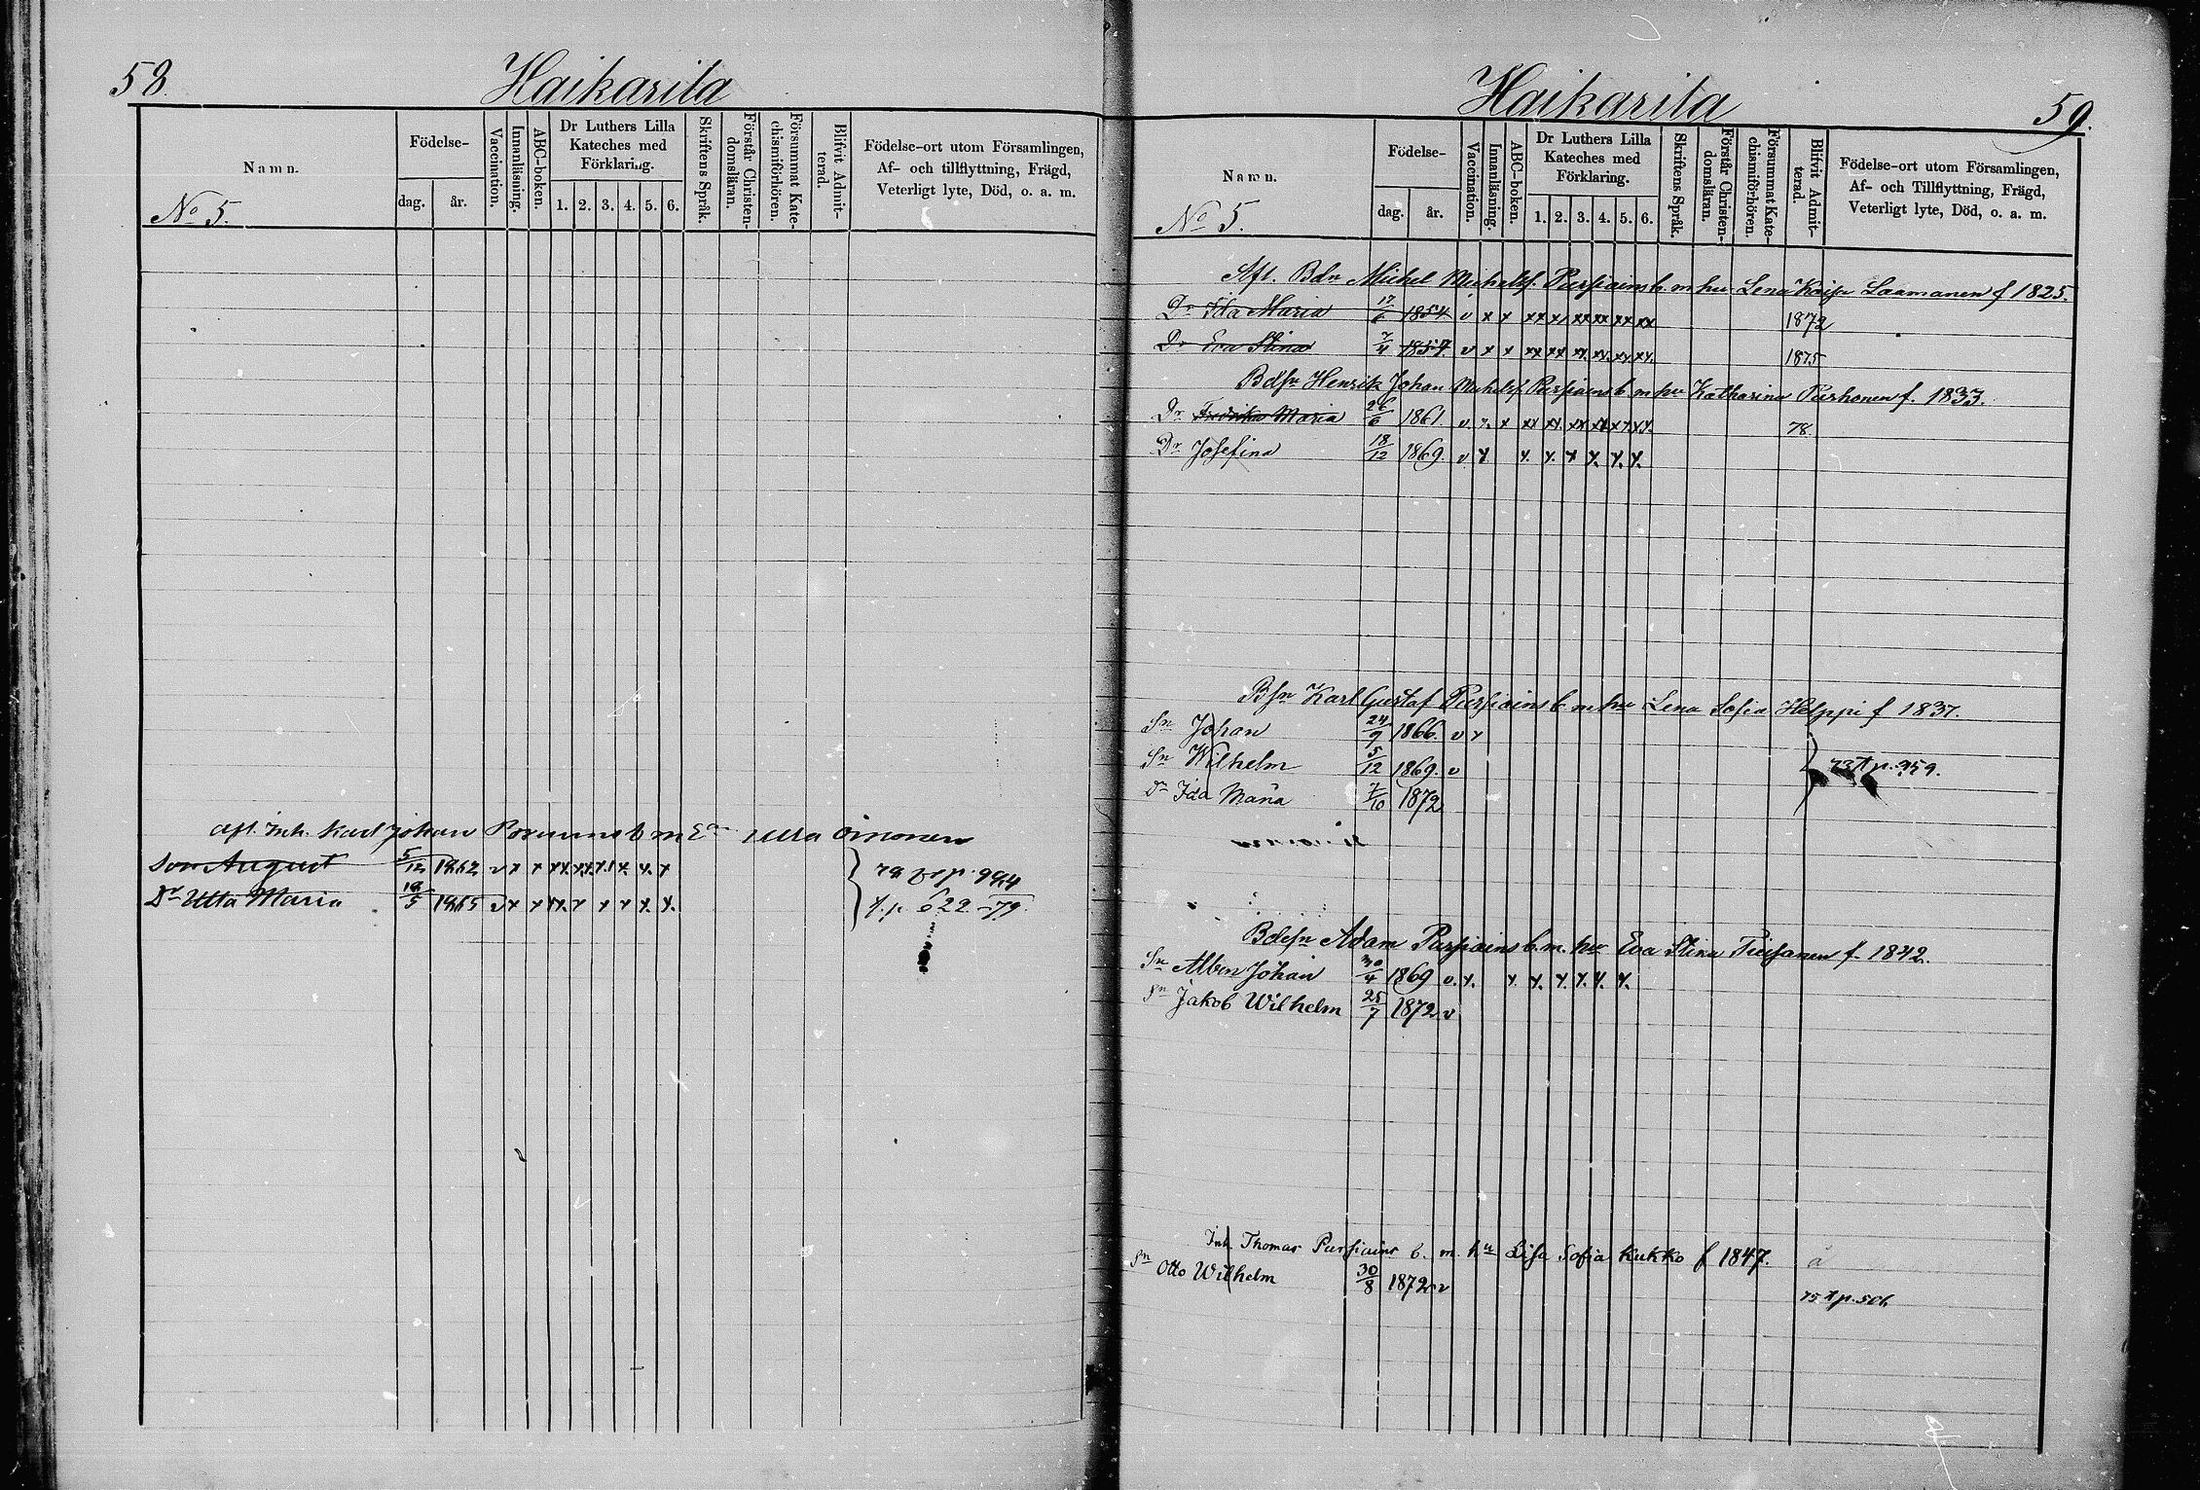 58.
Haikarila
Namn.
Födelse-
dag.
år.
Vaccination.
Innanläsning.
ABC-boken.
Dr Luthers Lilla
Kateches med
Förklaring.
1. 2. 3. 4. 5. 6.
Skriftens Språk.
Förstår Christen-
domsläran.
Försummat Kate-
chismiförhören.
Blifvit Admit-
terad.
Födelse-ort utom Församlingen,
Af- och tillflyttning, Frägd,
Veterligt lyte, Död, o. a. m.
No 5.
afl. Inh. Karl Johan m Ulla Oinonen
Son August 5/12 1862 v x x xx. xx. x. x. x. x
Dr Ulla Maria 19/5 1865 v x x x x x x x. x.
622
59.
Haikarila
Namn.
Födelse-
dag.
år.
Vaccination.
Innanläsning.
ABC-boken.
Dr Luthers Lilla
Kateches med
Förklaring.
1. 2. 3. 4. 5. 6.
Skriftens Språk.
Förstår Christen-
domsläran.
Försummat Kate-
chismiförhören.
Blifvit Admit-
terad.
Födelse-ort utom Församlingen,
Af- och Tillflyttning, Frägd,
Veterligt lyte, Död, o. a. m.
No 5.
Afl. Bdn Michel Michelsf. Pursiains b. m hu Lena Kaisa Laamanen f 1825.
Dr Ida Maria 17/6 1854 v x x xx x xx xx xx xx 1872
Dr Eva Stina 7/4 1857 v x x xx xx xx. xx. xx xx. 1875
Bdsn Henrik Johan Michelsf Pursiains b m hu Katharina Purhonen f. 1833.
Dr Fredrika Maria 26/6 1861. v. x. x xx xx. xx xx xx xx. 78.
Dr Josefina 18/12 1869. v x x. x. x x. x. x.
Bsn Karl Gustaf Pursiains b m hu Lena Sofia Helppi f 1837.
Sn Johan 24/9 1866. v x
Sn Wilhelm 5/12 1869. v
73 p. 959.
Dr Ida Maria 7/10 1872
Bdsn Adam Pursiains b. m. hu Eva Stina f. 1842.
Sn Albin Johan 30/4 1869 v. x. x. x. x. x. x. x.
Sn Jakob Wilhelm 25/7 1872 v
Inh Thomas Pursiains b. m. hu Lisa Sofia Kukko f 1847.
Sn Otto Wilhelm 30/8 1872 v
75 p. 506